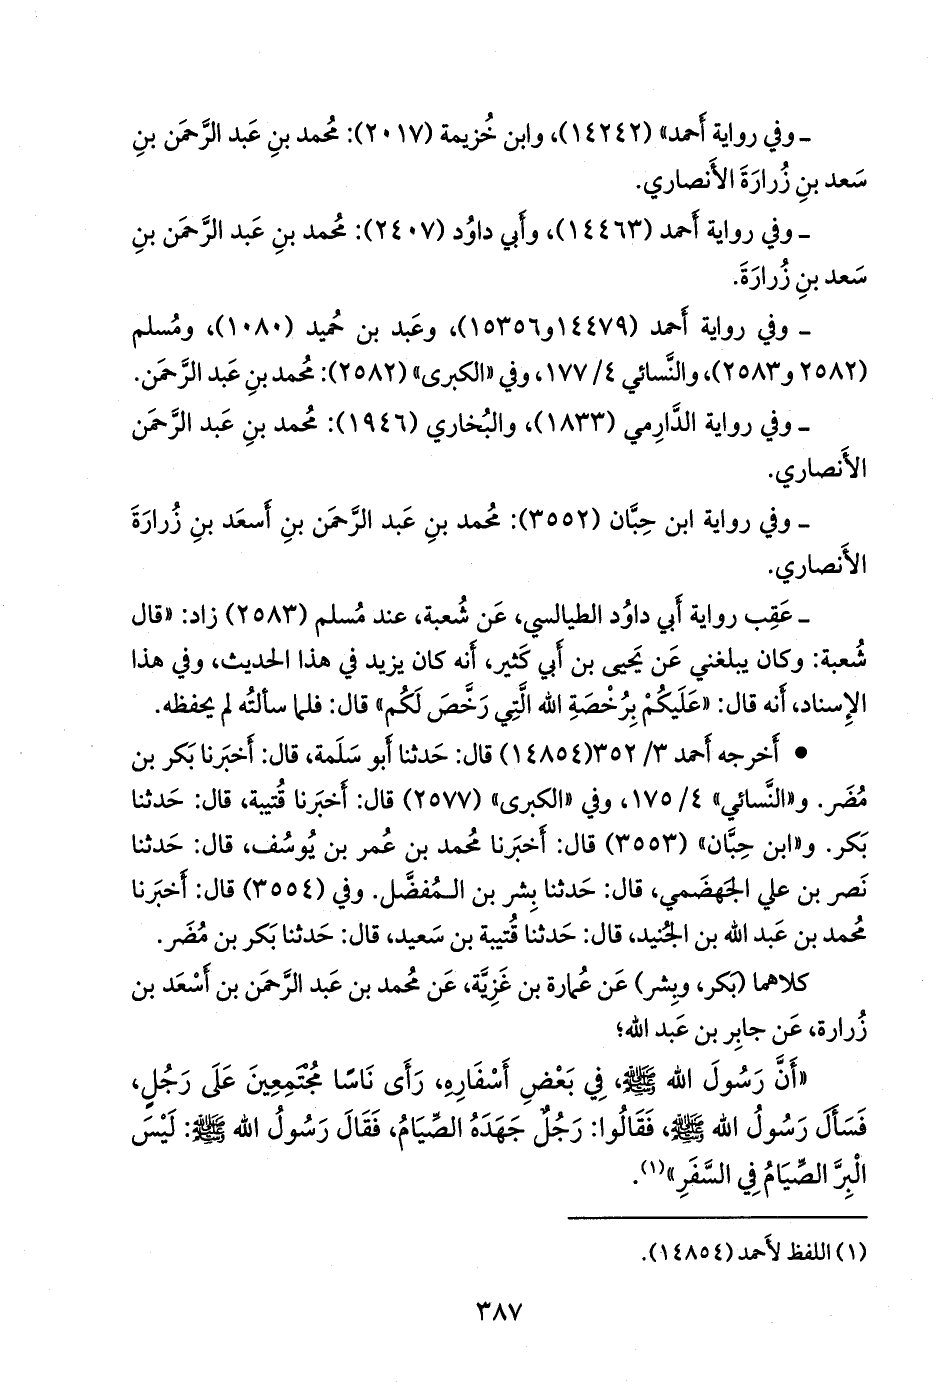 ـ وفي رواية أَحمد» (١٤٢٤٢)، وابن خُزيمة (٢٠١٧): مُحمد بنِ عَبد الرَّحمَن بنِ
سَعد بنِ زُرارَةَ الأَنصاري.
ـ وفي رواية أَحمد (١٤٤٦٣)، وأَبي داوُد (٢٤٠٧): مُحمد بنِ عَبد الرَّحمَن بنِ
سَعد بنِ زُرارَةَ.
ـ وفي رواية أَحمد (١٤٤٧٩ و١٥٣٥٦)، وعَبد بن حُميد (١٠٨٠)، ومُسلم
(٢٥٨٢ و٢٥٨٣)، والنَّسائي ٤/ ١٧٧، وفي «الكبرى» (٢٥٨٢): مُحمد بنِ عَبد الرَّحمَن.
ـ وفي رواية الدَّارِمي (١٨٣٣)، والبُخاري (١٩٤٦): مُحمد بنِ عَبد الرَّحمَن
الأَنصاري.
ـ وفي رواية ابن حِبَّان (٣٥٥٢): مُحمد بنِ عَبد الرَّحمَن بنِ أَسعَد بنِ زُرارَةَ
الأَنصاري.
ـ عَقِب رواية أَبي داوُد الطيالسي، عَن شُعبة، عند مُسلم (٢٥٨٣) زاد: «قال
شُعبة: وكان يبلغني عَن يَحيى بن أَبي كَثير، أَنه كان يزيد في هذا الحديث، وفي هذا
الإِسناد، أَنه قال: «عَلَيكُمْ بِرُخْصَةِ الله الَّتِي رَخَّصَ لَكُم» قال: فلما سأَلتُه لم يحفظه.
• أَخرجه أَحمد ٣/ ٣٥٢(١٤٨٥٤) قال: حَدثنا أَبو سَلَمة، قال: أَخبَرنا بَكر بن
مُضَر. و«النَّسائي» ٤/ ١٧٥، وفي «الكبرى» (٢٥٧٧) قال: أَخبَرنا قُتيبة، قال: حَدثنا
بَكر. و«ابن حِبَّان» (٣٥٥٣) قال: أَخبَرنا مُحمد بن عُمر بن يُوسُف، قال: حَدثنا
نَصر بن علي الجَهضَمي، قال: حَدثنا بِشر بن المُفضَّل. وفي (٣٥٥٤) قال: أَخبَرنا
مُحمد بن عَبد الله بن الجُنيد، قال: حَدثنا قُتيبة بن سَعيد، قال: حَدثنا بَكر بن مُضَر.
كلاهما (بَكر، وبِشر) عَن عُمارة بن غَزِيَّة، عَن مُحمد بن عَبد الرَّحمَن بن أَسْعَد بن
زُرارة، عَن جابِر بن عَبد الله؛
«أَنَّ رَسُولَ الله ﷺ، فِي بَعْضِ أَسْفَارِهِ، رَأَى نَاسًا مُجْتَمِعِينَ عَلَى رَجُلٍ،
فَسَأَلَ رَسُولُ الله ﷺ، فَقَالُوا: رَجُلٌ جَهَدَهُ الصِّيَامُ، فَقَالَ رَسُولُ الله ﷺ: لَيْسَ
الْبِرَّ الصِّيَامُ فِي السَّفَرِ»(١).
(١) اللفظ لأَحمد (١٤٨٥٤).
٣٨٧